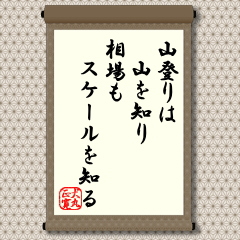 山登りは
山を知り
相場も
スケールを知る